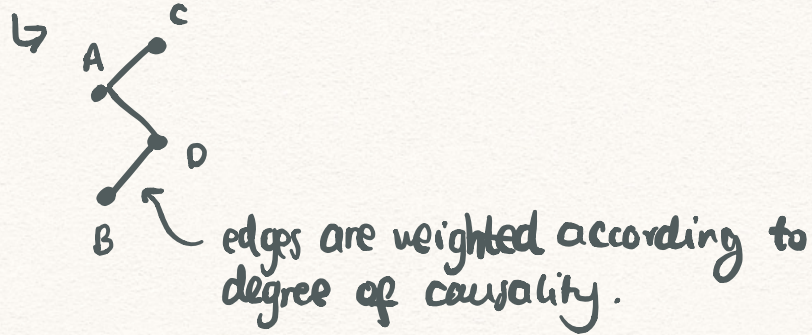 C
A
D
B
edges are weighted according to
degree of causality.